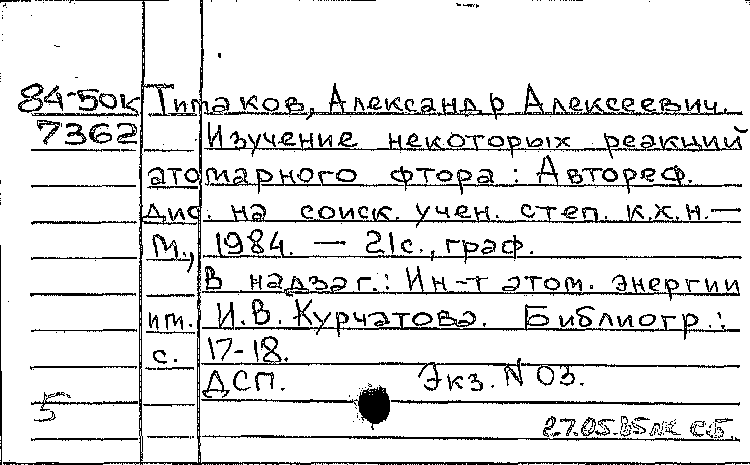 84-50к Тимаков, Александр Алексеевич.
7362 Изучение некоторых реакций
атомарного фтора : Автореф.
дис. на соиск. учен. степ. к.х.н. —
М., 1984. — 21с., граф.
В надзаг.: Ин-т атом. энергии
им. И.В. Курчатова. Библиогр.:
с. 17-18.
ДСП. Экз. N 03.
5
27.05.85 с.б.